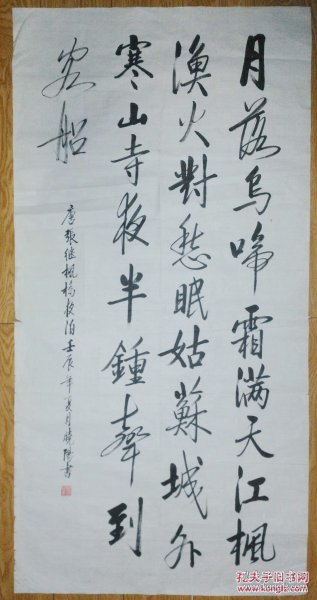 月落烏啼霜满天江楓
渔火對愁眠姑蘇城外
寒山寺夜半鍾聲到
客船
唐張继楓橋夜泊壬辰年夏月曉陽书
孔夫子旧书网